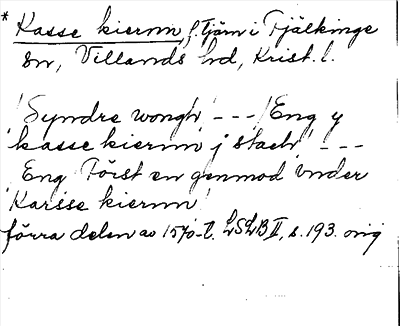 * Kasse kiernn, f. Tjärn i Tjälkinge
sn, Villands hd, Krist. l.
'Syndre wongh' - - - 'Eng y
kasse kiernn j stach' - - -
'Eng Först en genmod vnder
Karsse kiernn'
förra delen av 1570-t. LSLB II, s. 193. orig